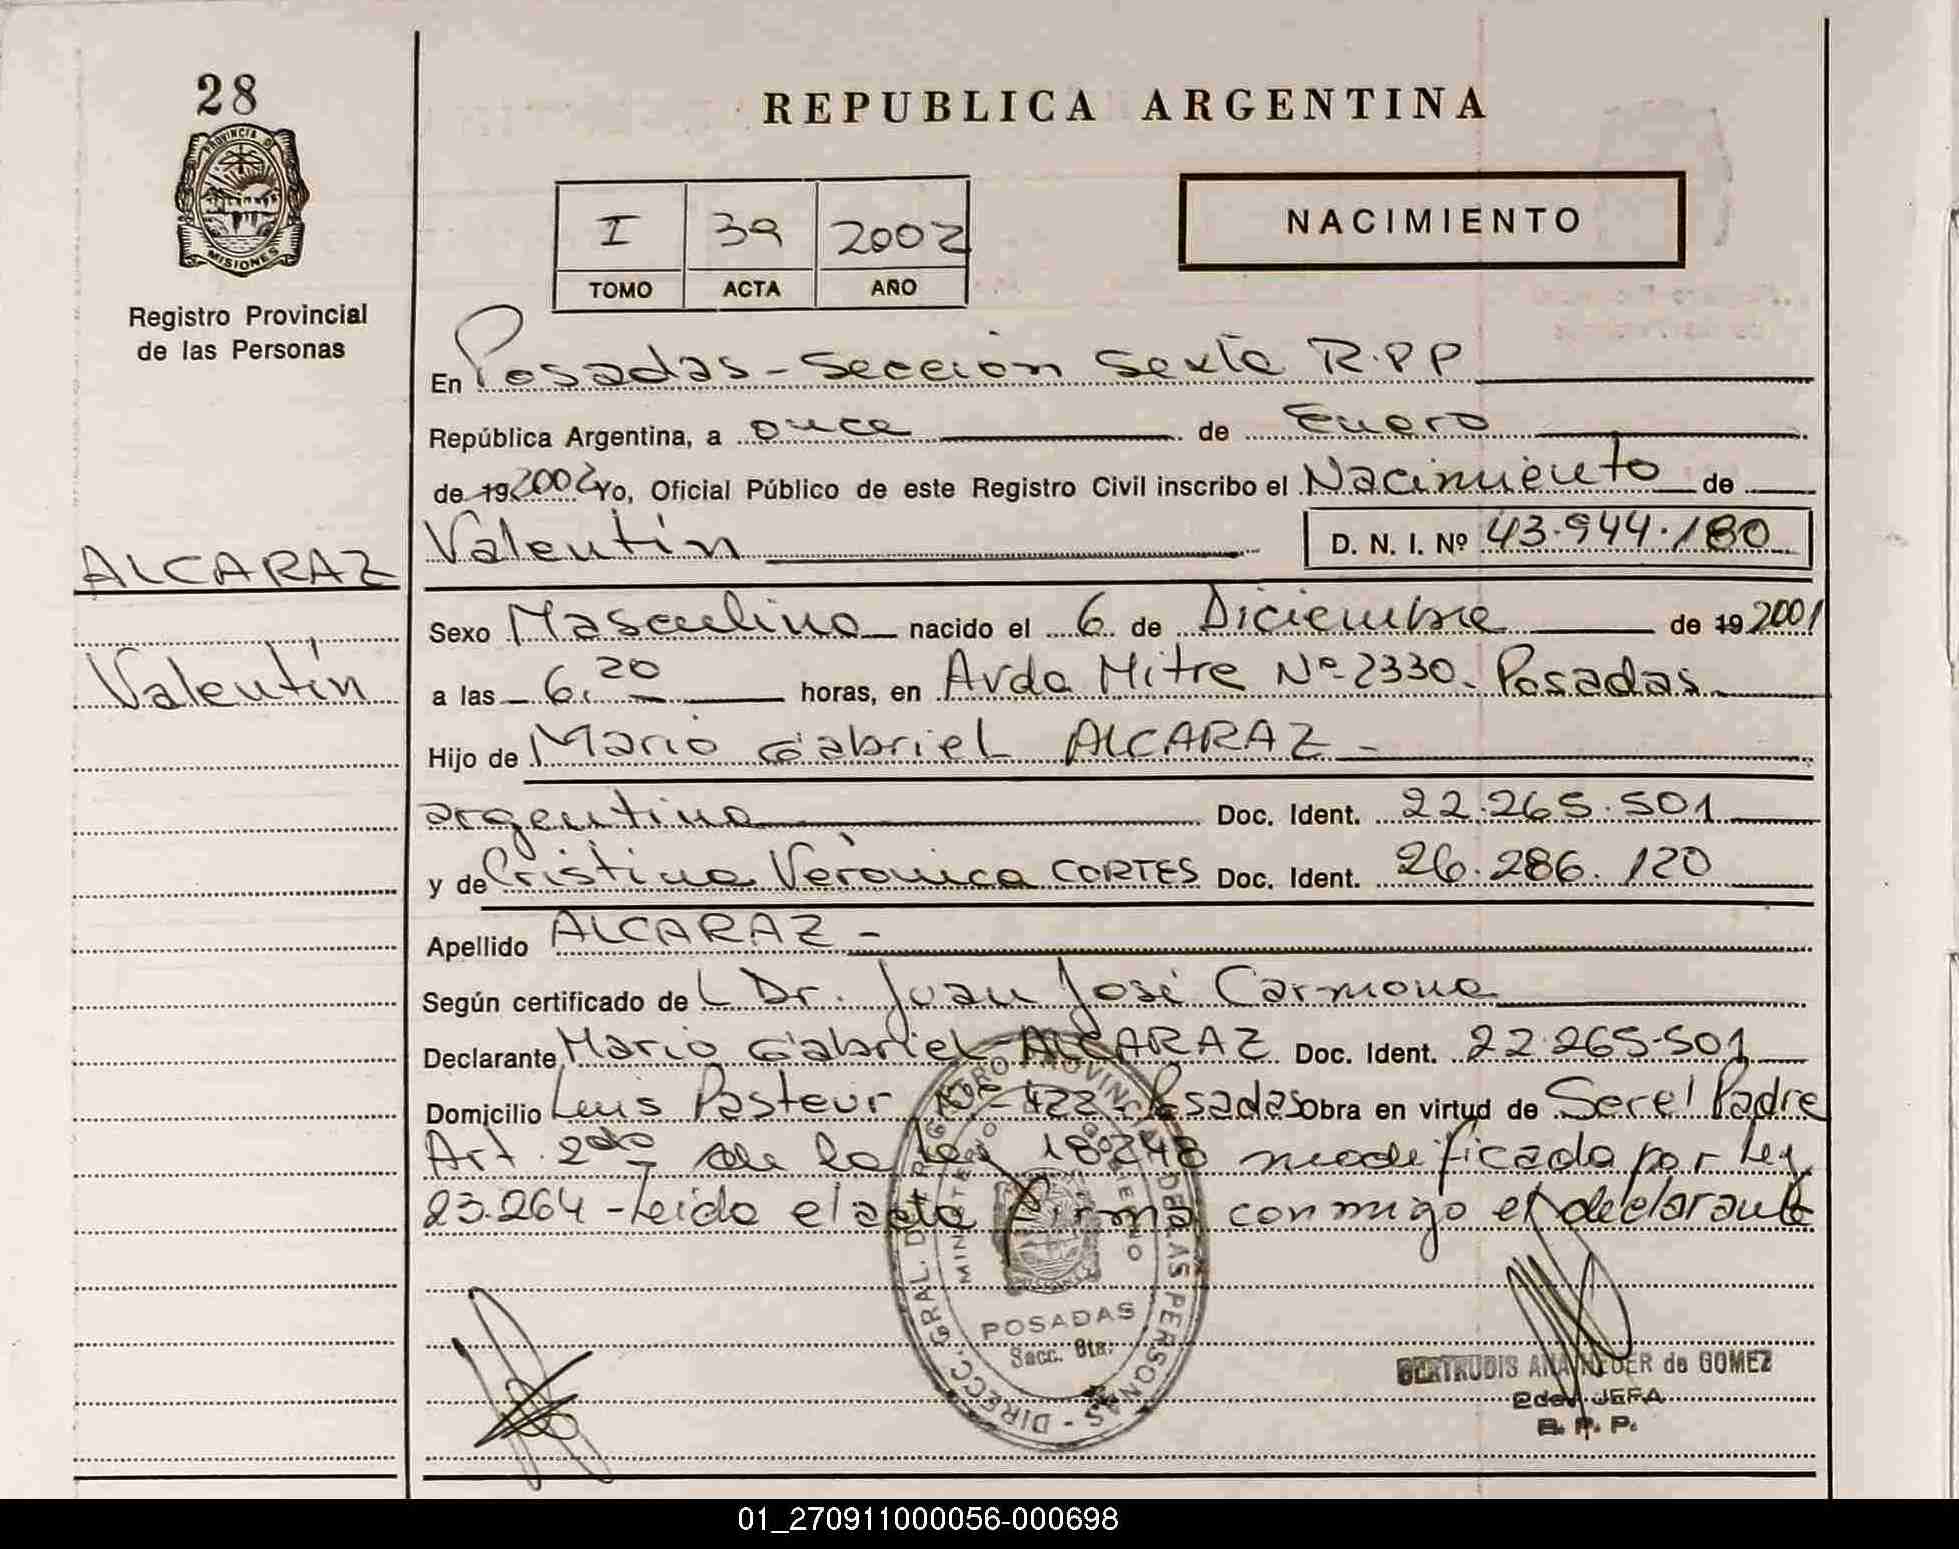 28
PROVINCIA D
MISIONES
Registro Provincial
de las Personas
REPUBLICA ARGENTINA
I 39 2002
TOMO ACTA AÑO
NACIMIENTO
En Posadas - Sección Sexta R.P.P
República Argentina, a once de Enero
de 19 2002 Yo, Oficial Público de este Registro Civil inscribo el Nacimiento de
Valentín D. N. I. Nº 43.944.180
ALCARAZ
Sexo Masculino nacido el 6 de Diciembre de 19 2001
Valentín
a las 6.20 horas, en Avda Mitre Nº 2330. Posadas
Hijo de Mario Gabriel ALCARAZ -
argentino Doc. Ident. 22.265.501
y de Cristina Verónica CORTES Doc. Ident. 26.286.120
Apellido ALCARAZ -
Según certificado de L Dr. Juan José Carmona
Declarante Mario Gabriel ALCARAZ Doc. Ident. 22.265.501
Domicilio Luis Pasteur Nº - 422 - Posadas Obra en virtud de Ser el Padre
Art. 2do de la Ley 18.248 modificada por Ley
23.264 - Leida el acta firma conmigo el declarante
DIRECC. GRAL. DEL REGISTRO PROVINCIAL DE LAS PERSONAS -
MINISTERIO GOBIERNO
POSADAS
Secc. 6ta.
GERTRUDIS ANA de GOMEZ
2da. JEFA
R. P. P.
01_270911000056-000698